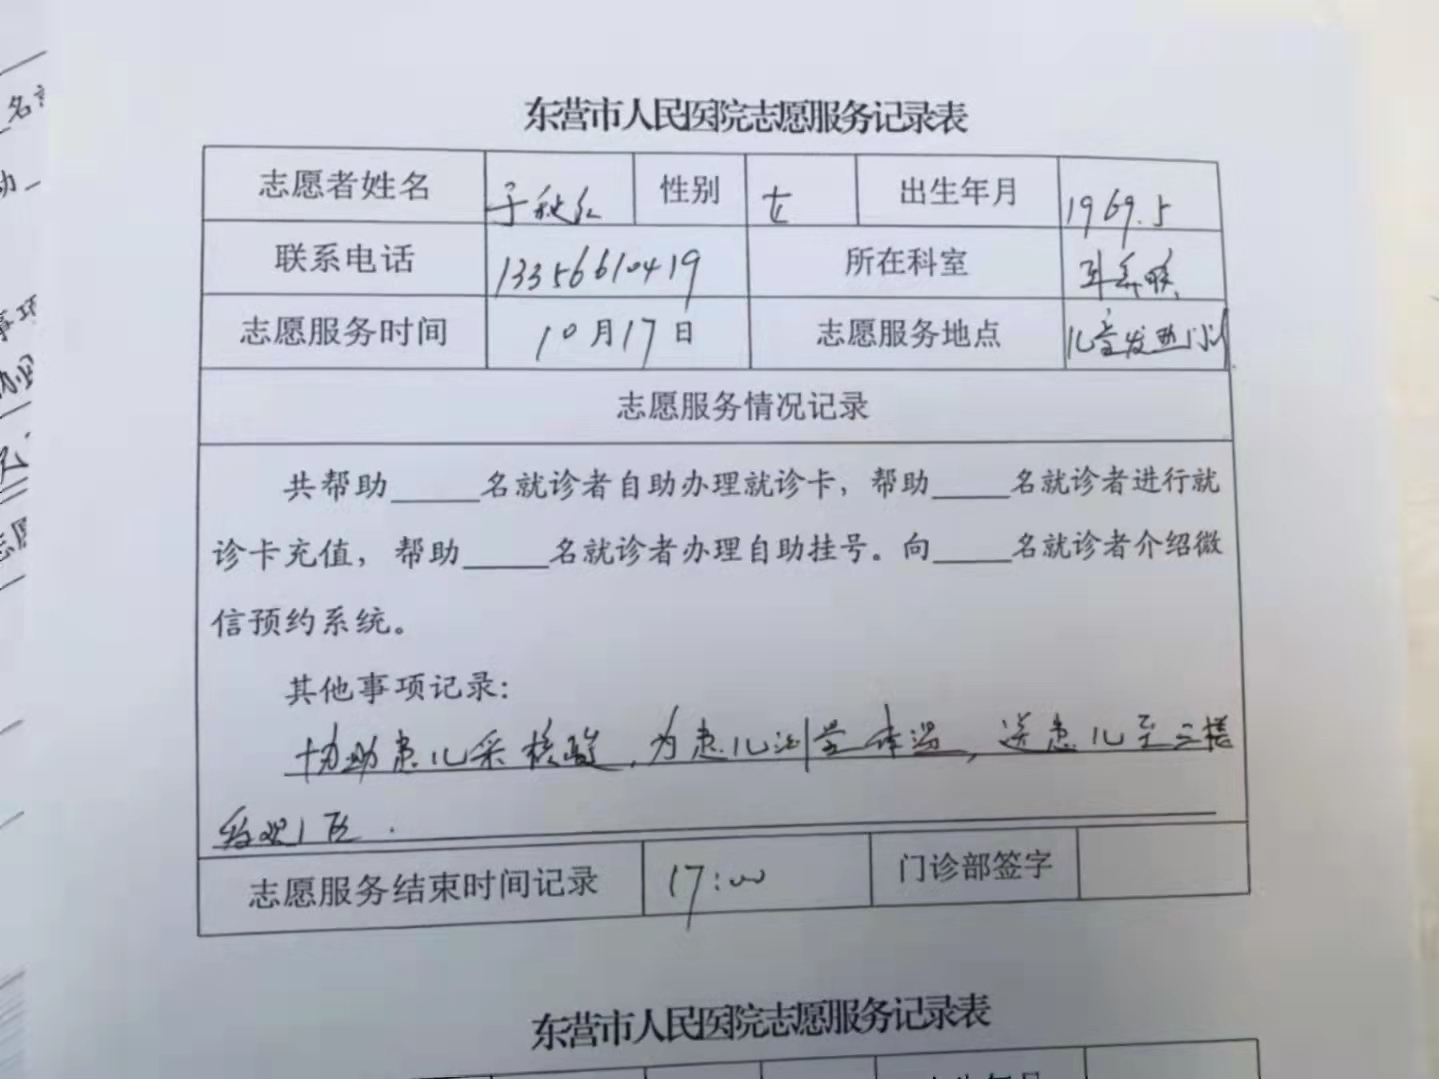 东营市人民医院志愿服务记录表
志愿者姓名 于秋红 性别 女 出生年月 1969.5
联系电话 13356610419 所在科室 耳鼻喉
志愿服务时间 10月17日 志愿服务地点 儿童发热门诊
志愿服务情况记录
共帮助_____名就诊者自助办理就诊卡，帮助_____名就诊者进行就
诊卡充值，帮助_____名就诊者办理自助挂号。向_____名就诊者介绍微
信预约系统。
其他事项记录：
协助患儿采核酸，为患儿测量体温，送患儿至三楼
志愿服务结束时间记录 17:00 门诊部签字
东营市人民医院志愿服务记录表